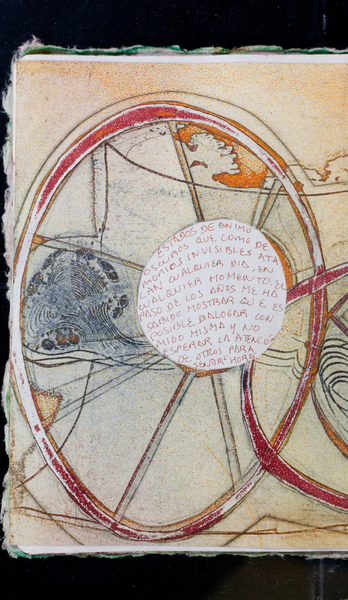 ESTADOS DE ÁNIMO
OSCUROS QUE COMO DE
MONIOS INVISIBLES ATA
CAN CUALQUIER DIA, EN
CUALQUIER MOMENTO. EL
PASO DE LOS AÑOS ME HA
SABIDO MOSTRAR QUE ES
POSIBLE DIALOGAR CON
MIGO MISMA Y NO
ESPERAR LA ATENCIÓN
DE OTROS PARA